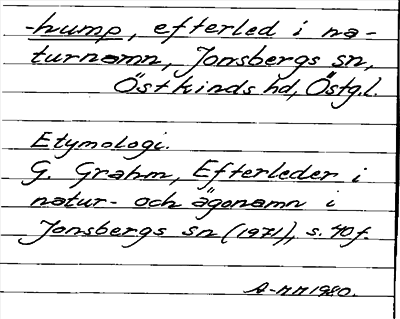 -hump, efterled i na-
turnamn, Jonsbergs sn,
Östkinds hd, Östg.l.
Etymologi.
G. Grahm, Efterleder i
natur- och ägonamn i
Jonsbergs sn (1971), s. 40 f.
A-NN 1980.